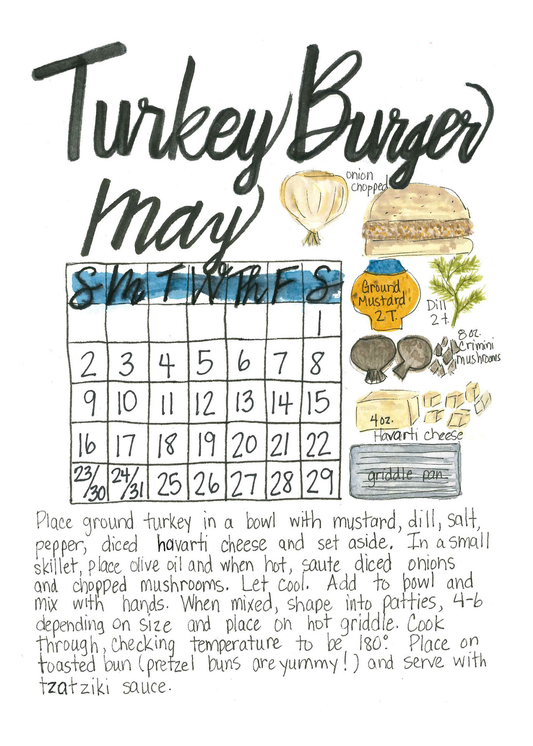 Turkey Burger
May
onion
chopped
S M T W Th F S
1
2 3 4 5 6 7 8
9 10 11 12 13 14 15
16 17 18 19 20 21 22
23/30 24/31 25 26 27 28 29
Ground
Mustard
2 T.
Dill
2 t.
8 oz.
Crimini
mushrooms
4 oz.
Havarti cheese
griddle pan
Place ground turkey in a bowl with mustard, dill, salt,
pepper, diced havarti cheese and set aside. In a small
skillet, place olive oil and when hot, saute diced onions
and chopped mushrooms. Let cool. Add to bowl and
mix with hands. When mixed, shape into patties, 4-6
depending on size and place on hot griddle. Cook
through, checking temperature to be 180°. Place on
toasted bun (pretzel buns are yummy!) and serve with
tzatziki sauce.